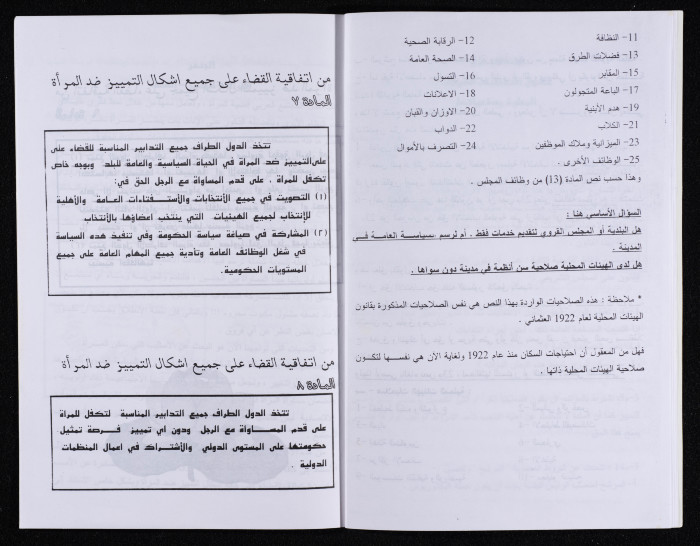 11- النظافة
12- الرقابة الصحية
13- فضلات الطرق
14- الصحة العامة
15- المقابر
16- التسول
17- الباعة المتجولون
18- الاعلانات
19- هدم الأبنية
20- الاوزان والقبان
21- الكلاب
22- الدواب
23- الميزانية وملاك الموظفين
24- التصرف بالأموال
25- الوظائف الأخرى .
وهذا حسب نص المادة (13) من وظائف المجلس .
السؤال الأساسي هنا :
هل البلدية أو المجلس القروي لتقديم خدمات فقط . أم لرسم سياسة العامة في
المدينة .
هل لدى الهيئات المحلية صلاحية سن أنظمة في مدينة دون سواها .
* ملاحظة : هذه الصلاحيات الواردة بهذا النص هي نفس الصلاحيات المذكورة بقانون
الهيئات المحلية لعام 1922 العثماني .
فهل من المعقول أن احتياجات السكان منذ عام 1922 ولغاية الآن هي نفسها لتكون
صلاحية الهيئات المحلية ذاتها .
من اتفاقية القضاء على جميع اشكال التمييز ضد المرأة
المادة ٧
تتخذ الدول الطراف جميع التدابير المناسبة للقضاء على
التمييز ضد المرأة في الحياة السياسية والعامة للبلد وبوجه خاص
تكفل للمراة . على قدم المساواة مع الرجل الحق في:
(١) التصويت في جميع الأنتخابات والأستفتاءات العامة والأهلية
للإنتخاب لجميع الهيئيات التي ينتخب اعضاؤها بالأنتخاب.
(٢) المشاركة في صياغة سياسة الحكومة وفي تنفيذ هده السياسة
في شغل الوظائف العامة وتادية جميع المهام العامة على جميع
المستويات الحكومية.
من اتفاقية القضاء على جميع اشكال التمييز ضد المرأة
المادة ٨
تتخذ الدول الطراف جميع التدابير المناسبة لتكفل للمراة
على قدم المساواة مع الرجل ودون اي تمييز فرصة تمثيل
حكومتها على المستوى الدولي والأشتراك في اعمال المنظمات
الدولية .